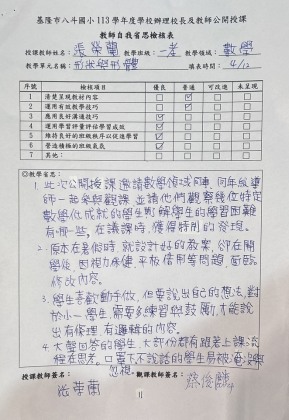 基隆市八斗國小 113 學年度學校辦理校長及教師公開授課
教師自我省思檢核表
授課教師姓名：張榮蘭 教學班級：一孝 教學領域：數學
教學單元名稱：形狀與形體 填表時間：4/12
序號 檢核項目 優良 普通 可改進 未呈現
1 清楚呈現教材內容
2 運用有效教學技巧
3 應用良好溝通技巧
4 運用學習評量評估學習成效
5 維持良好的班級秩序以促進學習
6 營造積極的班級氣氛
7 其他：
◎教學省思：
1. 此次公開授課邀請數學領域同事，何年級導
師一起參與觀課，並請他們觀察幾位特定
數學化成就的學生與瞭解學生的學習困難
有哪些，在議課時，獲得特別的發現。
2. 原本在暑假時就設計好的教案，卻在開
學後，因視力保健、平板借用等問題，面臨
修改內容。
3. 學生喜歡動手做，但要說出自己的想法，對
於小一學生需要多練習與鼓勵，才能說
出有條理、有邏輯的內容。
4. 大聲回答的學生，大部份都有跟著上課流
程在思考。口罩下不說話的學生易被
忽視。
授課教師簽名： 觀課教師簽名：
張榮蘭